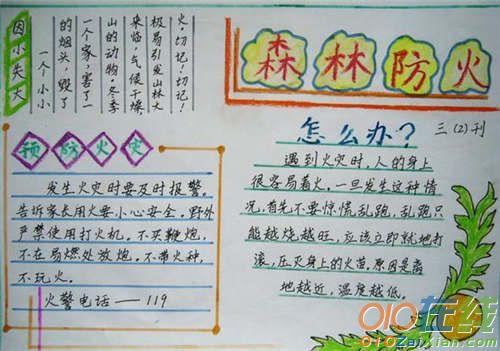 森林防火
三(2)刊
因小失大
一个小小
的烟头,毁了
一个家,害了一
山的动物。冬季
来临,气候干燥,
极易引发山林大
火,切记!切记!
预防火灾
发生火灾时要及时报警。
告诉家长用火要小心安全。野外
严禁使用打火机。不买鞭炮,
不在易燃处放炮。不带火种,
不玩火。
火警电话——119
怎么办?
遇到火灾时,人的身上
很容易着火。一旦发生这种情
况,首先不要惊慌乱跑,乱跑只
能越烧越旺,应该立即就地打
滚,压灭身上的火苗,原因是离
地越近,温度越低。
010在线
010ZaiXian.com